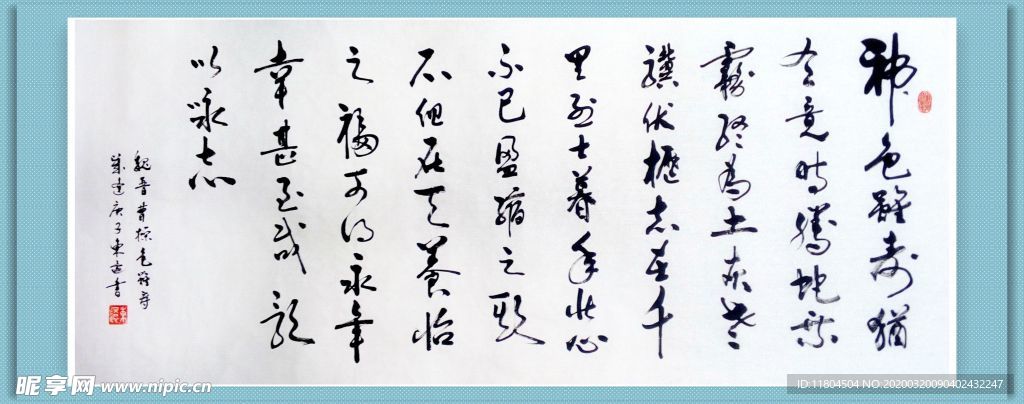 神龜雖壽猶
有竟時騰蛇乘
霧終為土灰老
驥伏櫪志在千
里烈士暮年壯心
不已盈縮之期
不但在天養怡
之福可得永年
幸甚至哉歌
以咏志
魏晉曹操龜雖壽
庚子東書
昵享网 www.nipic.cn
ID:11804504 NO:20200320090402432247